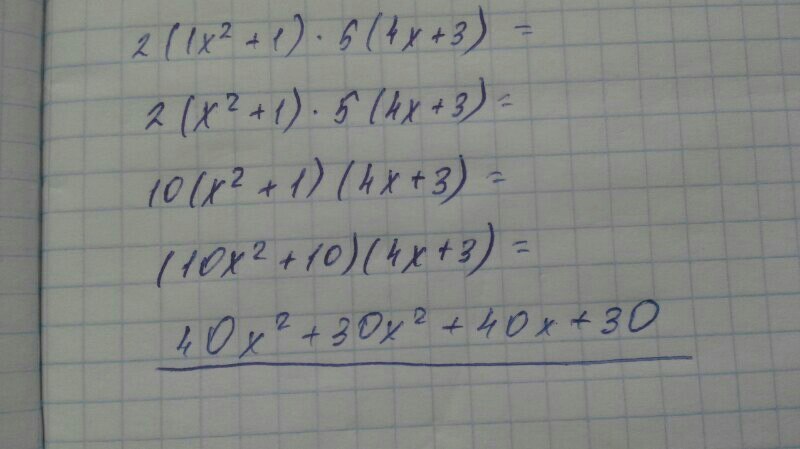 2(1x² + 1) · 5(4x+3) =
2(x² +1) · 5(4x+3) =
10(x² + 1)(4x+3) =
(10x² +10)(4x+3) =
40x² +30x² + 40x + 30